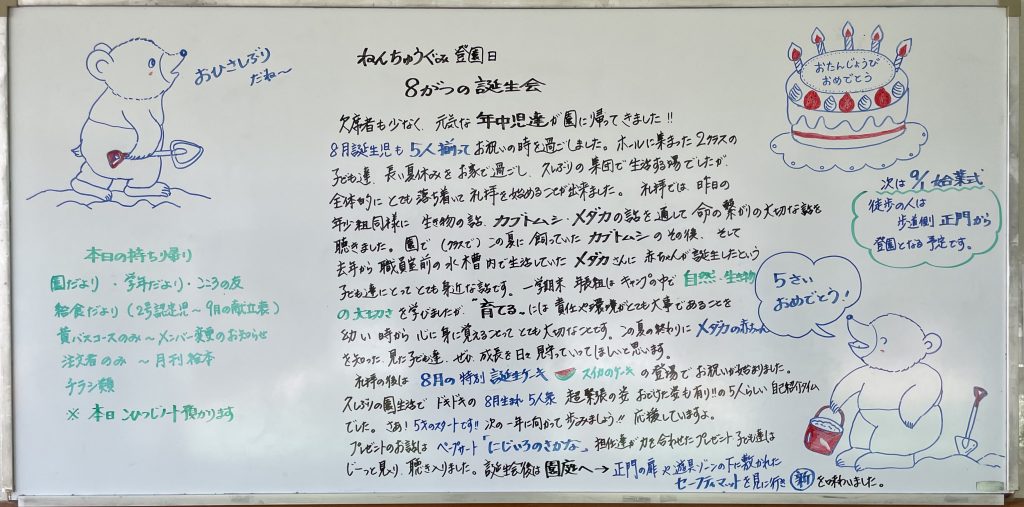 おひさしぶり
だね～
ねんちゅうぐみ 登園日
8がつの誕生会
欠席者も少なく、元気な 年中児達が園に帰ってきました!!
8月誕生児も 5人揃って お祝いの時を過ごしました。ホールに集まった2クラスの
子ども達、長い夏休みをお家で過ごし、久しぶりの集団で生活する場でしたが
全体的に とても落ち着いて礼拝を始めることが出来ました。 礼拝では、昨日の
年少組同様に 生き物の話 カブトムシ・メダカの話を通して 命の繋がりの大切な話を
聴きました。園で（クラスで）この夏に飼っていた カブトムシの その後、そして
去年から 職員室前の水槽内で生活していた メダカさんに 赤ちゃんが誕生したという
子ども達にとって とても身近な話です。一学期末 年長組は キャンプの中で 自然・生き物
の大切さ を学びましたが、"育てる"には 責任や環境がとても大事であることを
幼い 時から 心に身に覚えることって とても大切なことです。この夏の終わりに メダカの赤ちゃん
を知った、見た子ども達、ぜひ、成長を日々見守っていってほしいと思います。
礼拝の後は 8月の特別誕生ケーキ スイカのケーキ の登場でお祝いが始まりました。
久しぶりの園生活で ドキドキの 8月生まれ 5人衆 超緊張の姿 おどけた姿も有り!!の5人らしい 自己紹介タイム
でした。さあ! 5才のスタートです!! 次の一年に向かって歩みましょう!! 応援していますよ。
プレゼントのお話は ペープサート「にじいろのさかな」 担任達が力を合わせたプレゼント 子ども達は
じーっと見入り、聴き入りました。誕生会後は 園庭へ→正門の扉や遊具ゾーンの下に敷かれた
セーフティマットを見に行き 新 を味わいました。
本日の持ち帰り
園だより ・学年だより・こころの友
給食だより（2号認定児～9月の献立表）
黄バスコースのみ～メンバー変更のお知らせ
注文者のみ ～月刊絵本
チラシ類
※ 本日 こひつじノート預かります
おたんじょうび
おめでとう
次は 9/1 始業式
徒歩の人は
歩道側 正門から
登園となる予定です。
5さい
おめでとう!